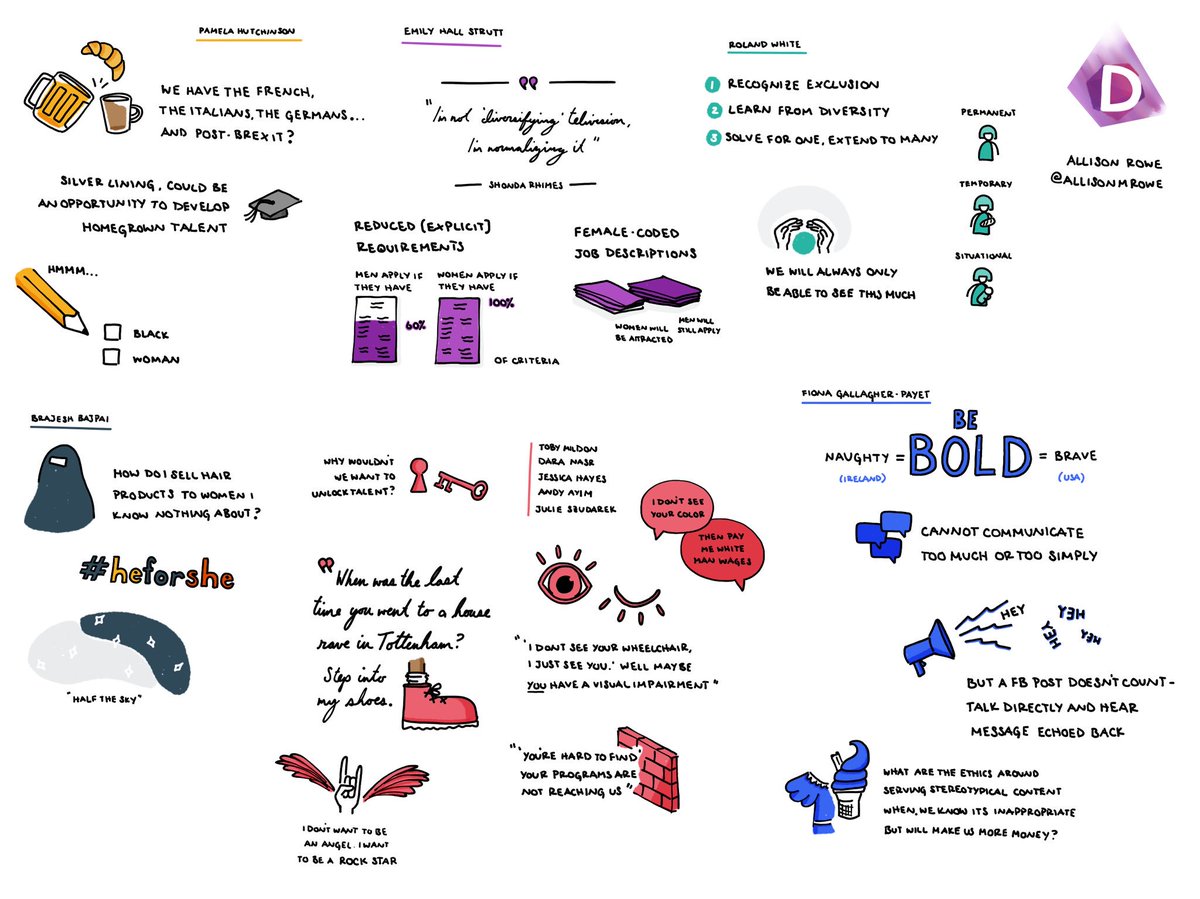 PAMELA HUTCHINSON
WE HAVE THE FRENCH,
THE ITALIANS, THE GERMANS...
AND POST-BREXIT?
SILVER LINING, COULD BE
AN OPPORTUNITY TO DEVELOP
HOMEGROWN TALENT
HMMM...
BLACK
WOMAN
EMILY HALL STRUTT
"I'm not 'diversifying' television,
I'm normalizing it"
SHONDA RHIMES
REDUCED (EXPLICIT)
REQUIREMENTS
MEN APPLY IF
THEY HAVE
60%
WOMEN APPLY IF
THEY HAVE
100%
OF CRITERIA
FEMALE-CODED
JOB DESCRIPTIONS
WOMEN WILL
BE ATTRACTED
MEN WILL
STILL APPLY
ROLAND WHITE
1 RECOGNIZE EXCLUSION
2 LEARN FROM DIVERSITY
3 SOLVE FOR ONE, EXTEND TO MANY
WE WILL ALWAYS ONLY
BE ABLE TO SEE THIS MUCH
PERMANENT
TEMPORARY
SITUATIONAL
D
ALLISON ROWE
@ALLISONMROWE
BRAJESH BAJPAI
HOW DO I SELL HAIR
PRODUCTS TO WOMEN I
KNOW NOTHING ABOUT?
#heforshe
"HALF THE SKY"
WHY WOULDN'T
WE WANT TO
UNLOCK TALENT?
TOBY MILDON
DARA NASR
JESSICA HAYES
ANDY AYIM
JULIE SZUDAREK
I DON'T SEE
YOUR COLOR
THEN PAY
ME WHITE
MAN WAGES
"When was the last
time you went to a house
rave in Tottenham?
Step into
my shoes.
"'I DONT SEE YOUR WHEELCHAIR,
I JUST SEE YOU.' WELL MAYBE
YOU HAVE A VISUAL IMPAIRMENT"
I DON'T WANT TO BE
AN ANGEL. I WANT
TO BE A ROCK STAR
"'YOU'RE HARD TO FIND'
YOUR PROGRAMS ARE
NOT REACHING US"
FIONA GALLAGHER-PAYET
BE
NAUGHTY = BOLD = BRAVE
(IRELAND)
(USA)
CANNOT COMMUNICATE
TOO MUCH OR TOO SIMPLY
HEY
HEY
HEY
HEY
BUT A FB POST DOESN'T COUNT-
TALK DIRECTLY AND HEAR
MESSAGE ECHOED BACK
WHAT ARE THE ETHICS AROUND
SERVING STEREOTYPICAL CONTENT
WHEN WE KNOW ITS INAPPROPRIATE
BUT WILL MAKE US MORE MONEY?